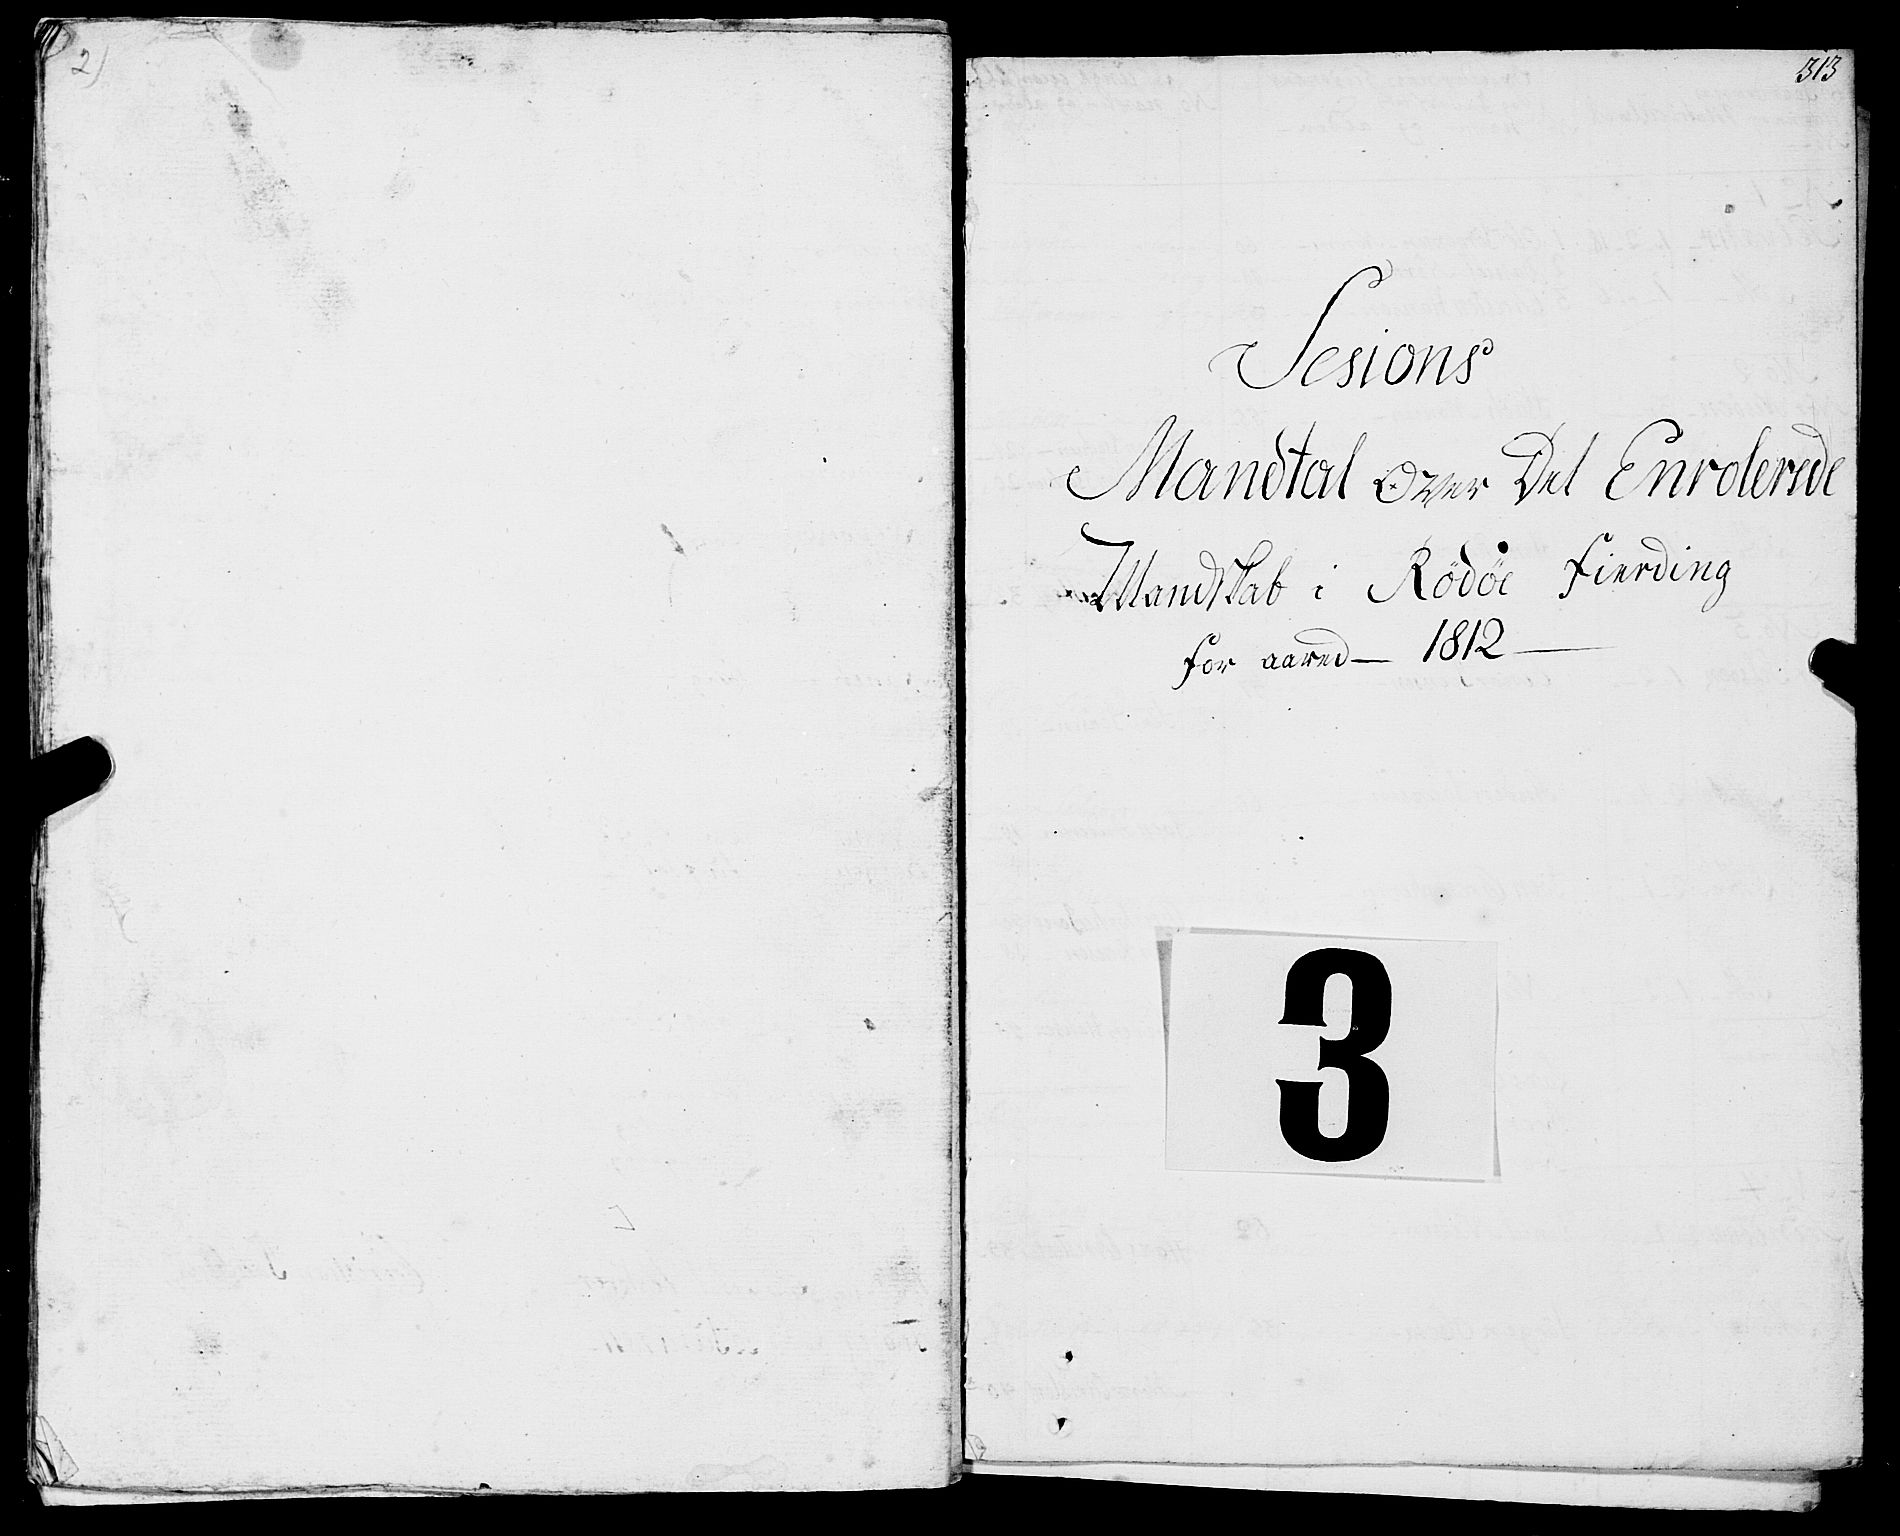 2)
313
Sesions
Mandtal over Det Enrolerede
Mandskab i Rödöe Fierding
for aared — 1812 —
3